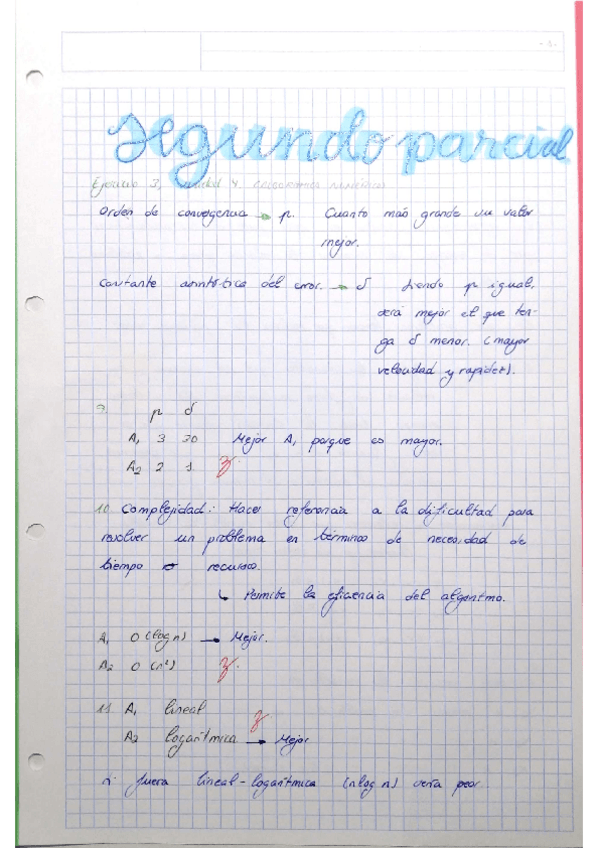 - 1 -
segundo parcial
Ejercicio 3, unidad 4.
Orden de convergencia → p. Cuanto más grande su valor
mejor.
Constante asintótica del error. → δ Siendo p igual,
será mejor el que ten-
ga δ menor. (mayor
velocidad y rapidez).
9. p δ
A1 3 30 Mejor A1 porque es mayor.
A2 2 1
10. Complejidad: Hacer referencia a la dificultad para
resolver un problema en términos de necesidad de
tiempo o recurso.
↳ Permite la eficiencia del algoritmo.
A1 O(log n) → Mejor.
A2 O(n²)
11. A1 lineal
A2 logarítmica → Mejor
Si fuera lineal-logarítmica (n log n) sería peor.